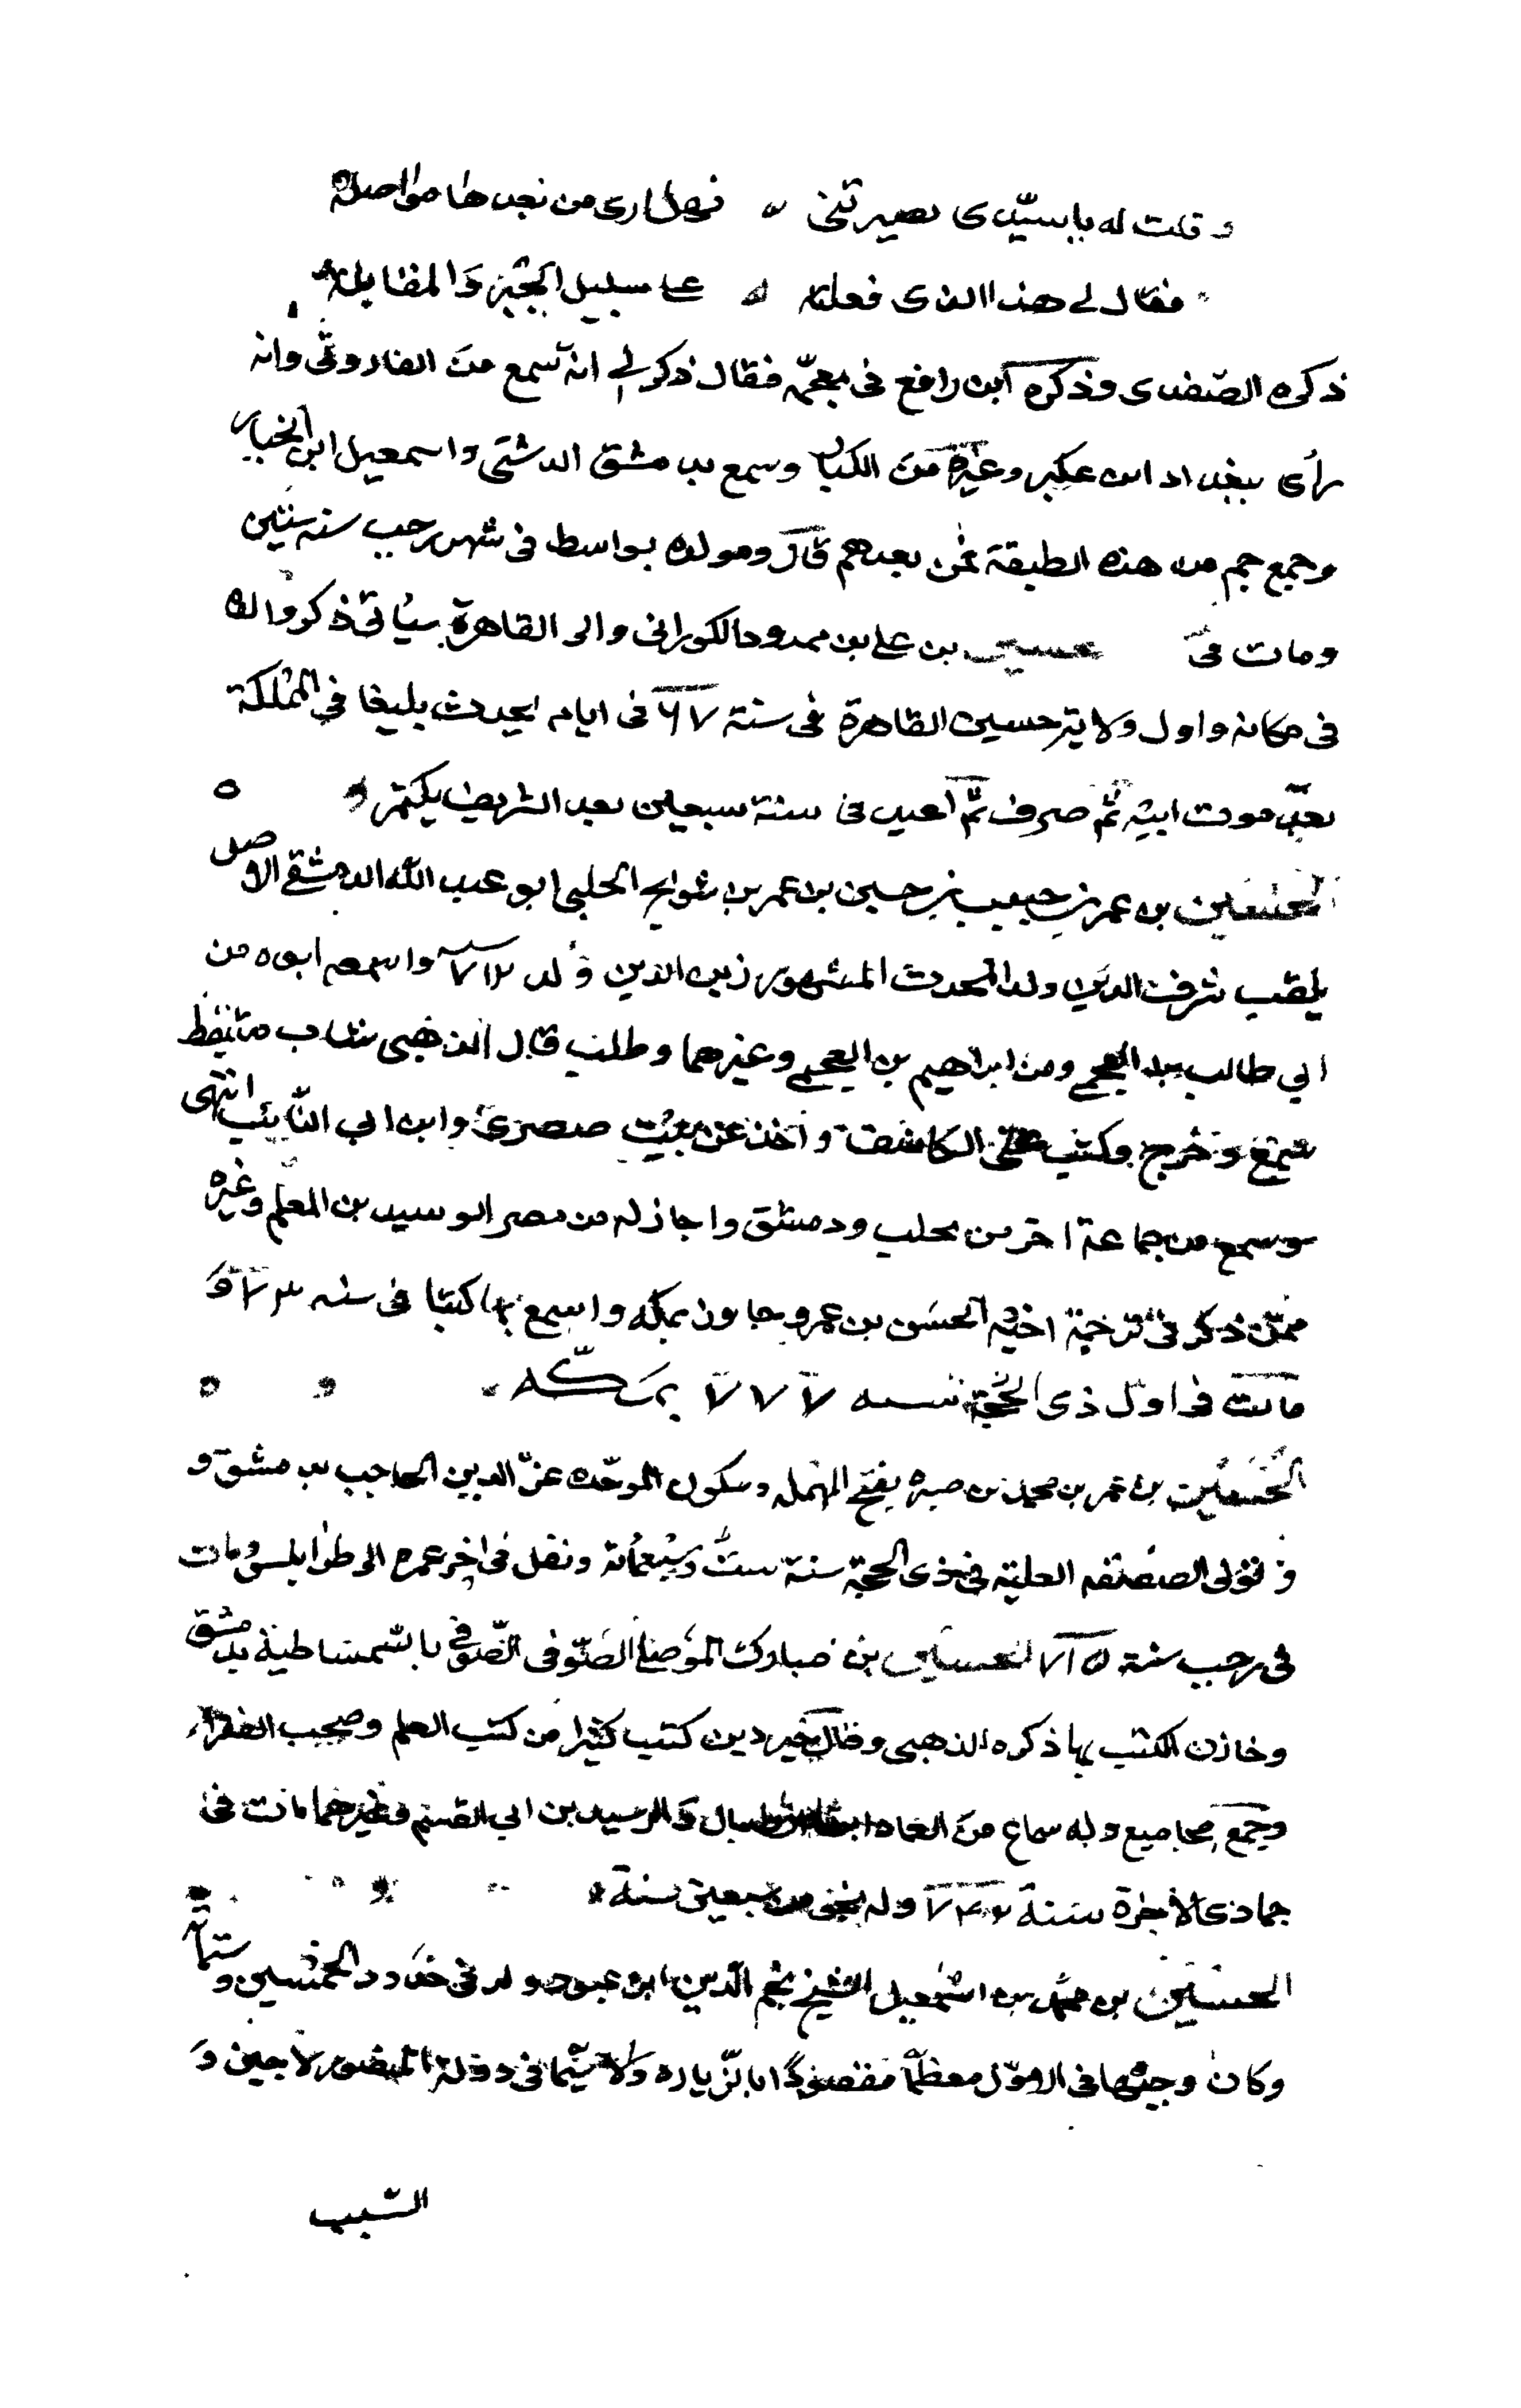 وقلت له يا سيدى بصيرتنى ه فهل ارى من نجدها مواصله
فقال لي هذا الذى فعلته ه على سبيل الجبر والمقابله
ذكره الصفدى وذكره ابن رافع فى معجمه فقال ذكر لي انه سمع من الفاروثى وانه
رأى ببغداد ابن عكبر وغيره من الكبار وسمع بدمشق الدشتى واسمعيل ابن الخباز
وجمع جم من هذه الطبقة فمن بعدهم قال ومولده بواسط فى شهر رجب سنه ستين
ومات فى حسين بن علي بن ممدود الكورانى والى القاهرة سيأتى ذكر والده
فى مكانه واول ولايته حسين القاهرة فى سنة ٦٧ فى ايام تحدث يلبغا في المملكة
بعد موت ابيه ثم صرف ثم اعيد فى سنة سبعين بعد الشريف بكتمر ه ه
الحسين بن عمر بن حبيب بن حسين بن عمر بن شويخ الحلبى ابو عبد الله الدمشقي الاصل
يلقب شرف الدين ولد المحدث المشهور زين الدين ولد ٧١٢ واسمعه ابوه من
ابي طالب بن العجمي ومن ابراهيم بن العجمي وغيرهما وطلب قال الذهبى شاب متيقظ
سمع وخرج وكتب عنى الكاشف واخذ عن بنت صصرى وابن ابى التائب انتهى
وسمع من جماعة اخر من بحلب ودمشق واجاز له من مصر ابو سيد بن المعلم وغيره
ممن ذكر فى ترجمة اخيه الحسن بن عمر وجاور بمكه واسمع بها كتبا فى سنه ٧٣ و
مات فى اول ذى الحجة سنه ٧٧٧ بمكه ه ه
الحسين بن عمر بن محمد بن صبره بفتح المهمله وسكون الموحده عز الدين الحاجب بدمشق و
تولى الصفقه العلية فى ذى الحجة سنة ست وسبعمائة ونقل فى اخر عمره الى طرابلس ومات
فى رجب سنة ٧١٥ الحسين بن مبارك الموصلى الصوفى الصوفي بالشمساطية بدمشق
وخازن الكتب بها ذكره الذهبى وقال خير دين كتب كثيرا من كتب العلم وصحب الفقراء
وجمع مجاميع وله سماع من العماد ابن الطبال والرشيد بن ابي القسم وغيرهما مات فى
جمادى الاخرة سنة ٧٤٢ وله نحو من سبعين سنة ه
الحسين بن محمد بن اسمعيل الشيخ نجم الدين ابن عبود ولد فى حدود الخمسين وستمائة
وكان وجيها فى الدول معظما مقصودا بالزيارة ولا سيما فى دولة المنصور لاجين و
السبب